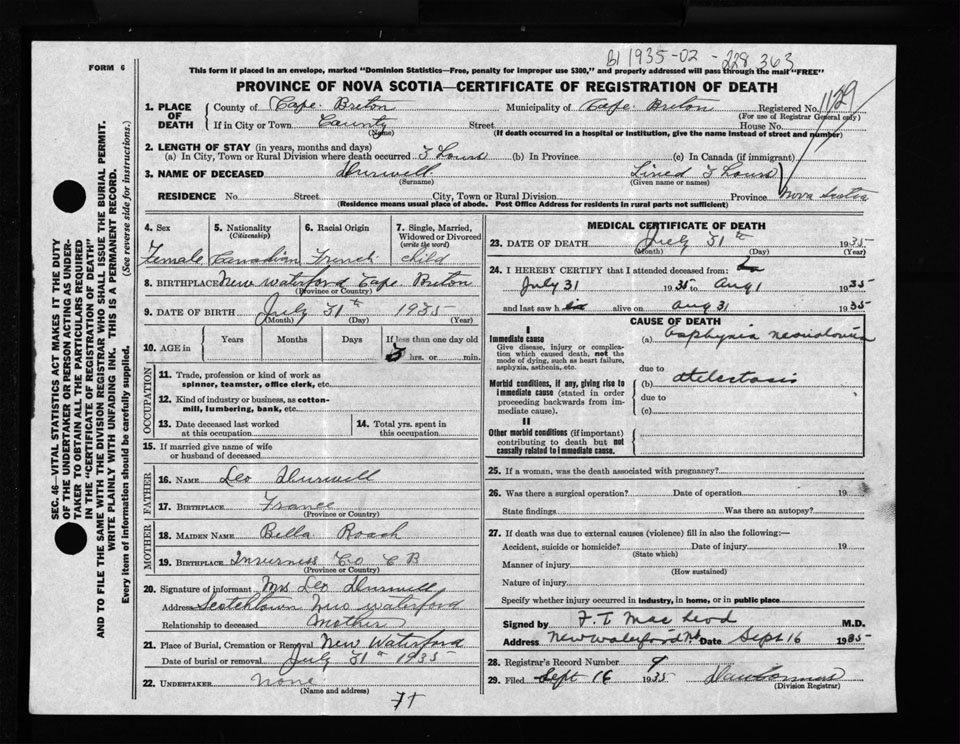 1935-02-228363
FORM 6
This form if placed in an envelope, marked "Dominion Statistics—Free, penalty for improper use $300," and properly addressed will pass through the mail "FREE"
PROVINCE OF NOVA SCOTIA—CERTIFICATE OF REGISTRATION OF DEATH
1. PLACE OF DEATH County of Cape Breton Municipality of Cape Breton Registered No. 1129
(For use of Registrar General only)
If in City or Town County Street House No.
(Name) (If death occurred in a hospital or institution, give the name instead of street and number)
2. LENGTH OF STAY (in years, months and days)
(a) In City, Town or Rural Division where death occurred hours (b) In Province (c) In Canada (if immigrant)
3. NAME OF DECEASED Lived hours
(Surname) (Given name or names)
RESIDENCE No. Street City, Town or Rural Division Province Nova Scotia
(Residence means usual place of abode. Post Office Address for residents in rural parts not sufficient)
SEC. 46—VITAL STATISTICS ACT MAKES IT THE DUTY
OF THE UNDERTAKER OR PERSON ACTING AS UNDER-
TAKER TO OBTAIN ALL THE PARTICULARS REQUIRED
IN THE "CERTIFICATE OF REGISTRATION OF DEATH"
AND TO FILE THE SAME WITH THE DIVISION REGISTRAR WHO SHALL ISSUE THE BURIAL PERMIT.
WRITE PLAINLY WITH UNFADING INK. THIS IS A PERMANENT RECORD.
Every item of information should be carefully supplied. (See reverse side for instructions.)
4. Sex 5. Nationality (Citizenship) 6. Racial Origin 7. Single, Married, Widowed or Divorced (write the word)
Female Canadian French child
8. BIRTHPLACE New Waterford Cape Breton
(Province or Country)
9. DATE OF BIRTH July 31th 1935
(Month) (Day) (Year)
10. AGE in Years Months Days If less than one day old
hrs. or min.
OCCUPATION
11. Trade, profession or kind of work as spinner, teamster, office clerk, etc.
12. Kind of industry or business, as cotton-mill, lumbering, bank, etc.
13. Date deceased last worked at this occupation 14. Total yrs. spent in this occupation
15. If married give name of wife or husband of deceased
FATHER
16. NAME Leo
17. BIRTHPLACE France
(Province or Country)
MOTHER
18. MAIDEN NAME Bella Roach
19. BIRTHPLACE Inverness Co C B
(Province or Country)
20. Signature of informant Mrs Leo
Address Scotchtown New Waterford
Relationship to deceased Mother
21. Place of Burial, Cremation or Removal New Waterford
Date of burial or removal July 31 1935
22. UNDERTAKER none
(Name and address)
MEDICAL CERTIFICATE OF DEATH
23. DATE OF DEATH July 31th 1935
(Month) (Day) (Year)
24. I HEREBY CERTIFY that I attended deceased from:
July 31 1935 to Aug 1 1935
and last saw h alive on Aug 31 1935
CAUSE OF DEATH
I
Immediate cause (a) asphyxia
Give disease, injury or complication which caused death, not the mode of dying, such as heart failure, asphyxia, asthenia, etc.
due to
Morbid conditions, if any, giving rise to immediate cause (stated in order proceeding backwards from immediate cause). (b)
due to
(c)
II
Other morbid conditions (if important) contributing to death but not causally related to immediate cause.
25. If a woman, was the death associated with pregnancy?
26. Was there a surgical operation? Date of operation 19
State findings Was there an autopsy?
27. If death was due to external causes (violence) fill in also the following:—
Accident, suicide or homicide? Date of injury 19
(State which)
Manner of injury
(How sustained)
Nature of injury
Specify whether injury occurred in industry, in home, or in public place
Signed by F. T. MacLeod M.D.
Address New Waterford N.S. Date Sept 16 1935
28. Registrar's Record Number 9
29. Filed Sept 16 1935
(Division Registrar)